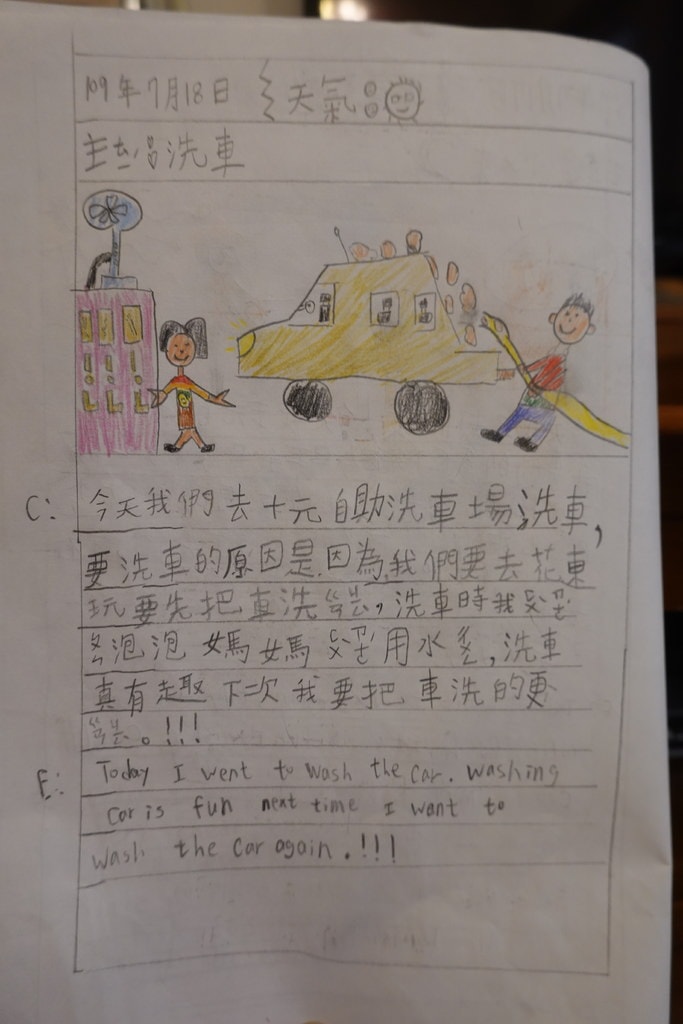 109年7月18日 天氣:
主ㄊㄧˊ:洗車
C: 今天我們去十元自助洗車場洗車,
要洗車的原因是因為,我們要去花東
玩要先把車洗 ,洗車時我
泡泡 媽媽 用水 ,洗車
真有趣下次我要把車洗的更
。!!!
E: Today I went to wash the car. washing
car is fun next time I want to
wash the car again.!!!